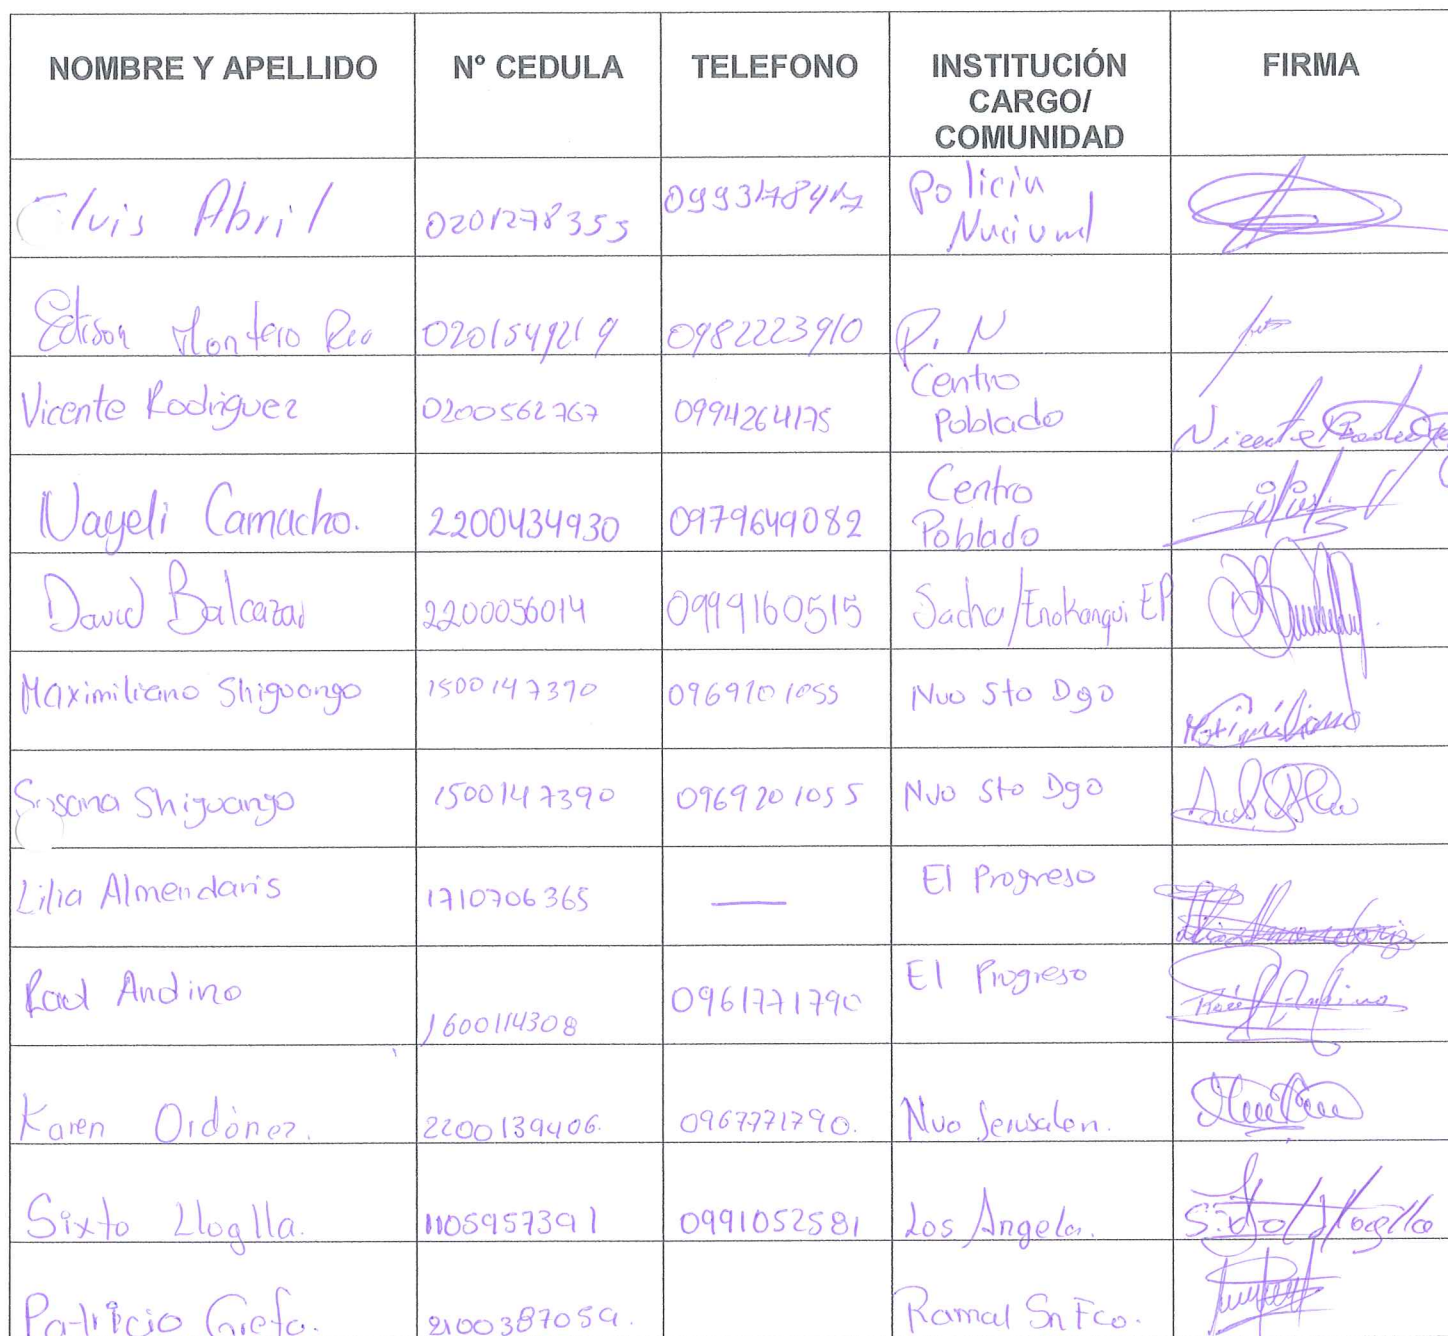 NOMBRE Y APELLIDO Nº CEDULA TELEFONO INSTITUCIÓN CARGO/ COMUNIDAD FIRMA
Elvis Abril 0201278355 Policia Nacional
Edison Montero 0201549219 0982223910 P. N
Vicente Rodriguez 0200562767 0994264175 Centro Poblado Vicente
Nayeli Camacho. 2200434930 0979649082 Centro Poblado
David Balcazar 2200056014 0999160515 Sacha/Enokanqui EP
Maximiliano Shiguango 1500147390 0969201055 Nuo Sto Dgo Maximiliano
Susana Shiguango 1500147390 0969201055 Nuo Sto Dgo
Lilia Almendaris 1710706365 — El Progreso Lilia Almendariz
Raul Andino 1600114308 0961771790 El Progreso
Karen Ordónez. 2200139406. 0967771790. Nuo Jerusalen.
Sixto Lloglla. 1105957391 0991052581 Los Angeles. Sixto Lloglla
Patricio Grefa. 2100387059. Ramal Sn Fco.